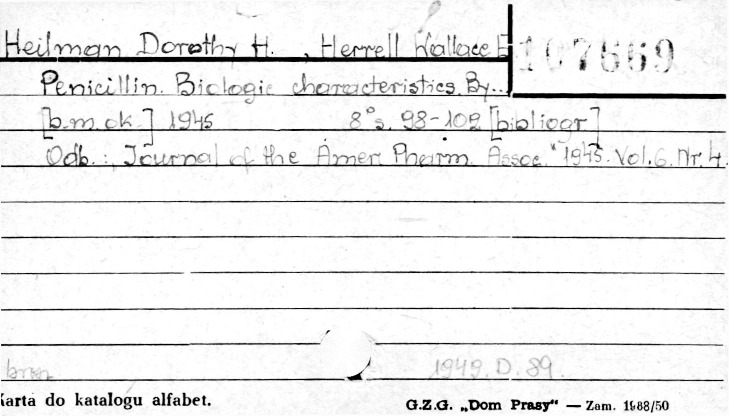 Heilman Dorothy H. , Herrell Wallace E
107669
Penicillin. Biologic characteristics. By...
[b.m.ok.] 1945 8° s. 98-102 [bibliogr]
Odb.: „Journal of the Amer. Pharm. Assoc." 1945. Vol. 6. Nr. 4.
brosz 1949. D. 89.
Karta do katalogu alfabet.
G.Z.G. „Dom Prasy" — Zam. 1688/50